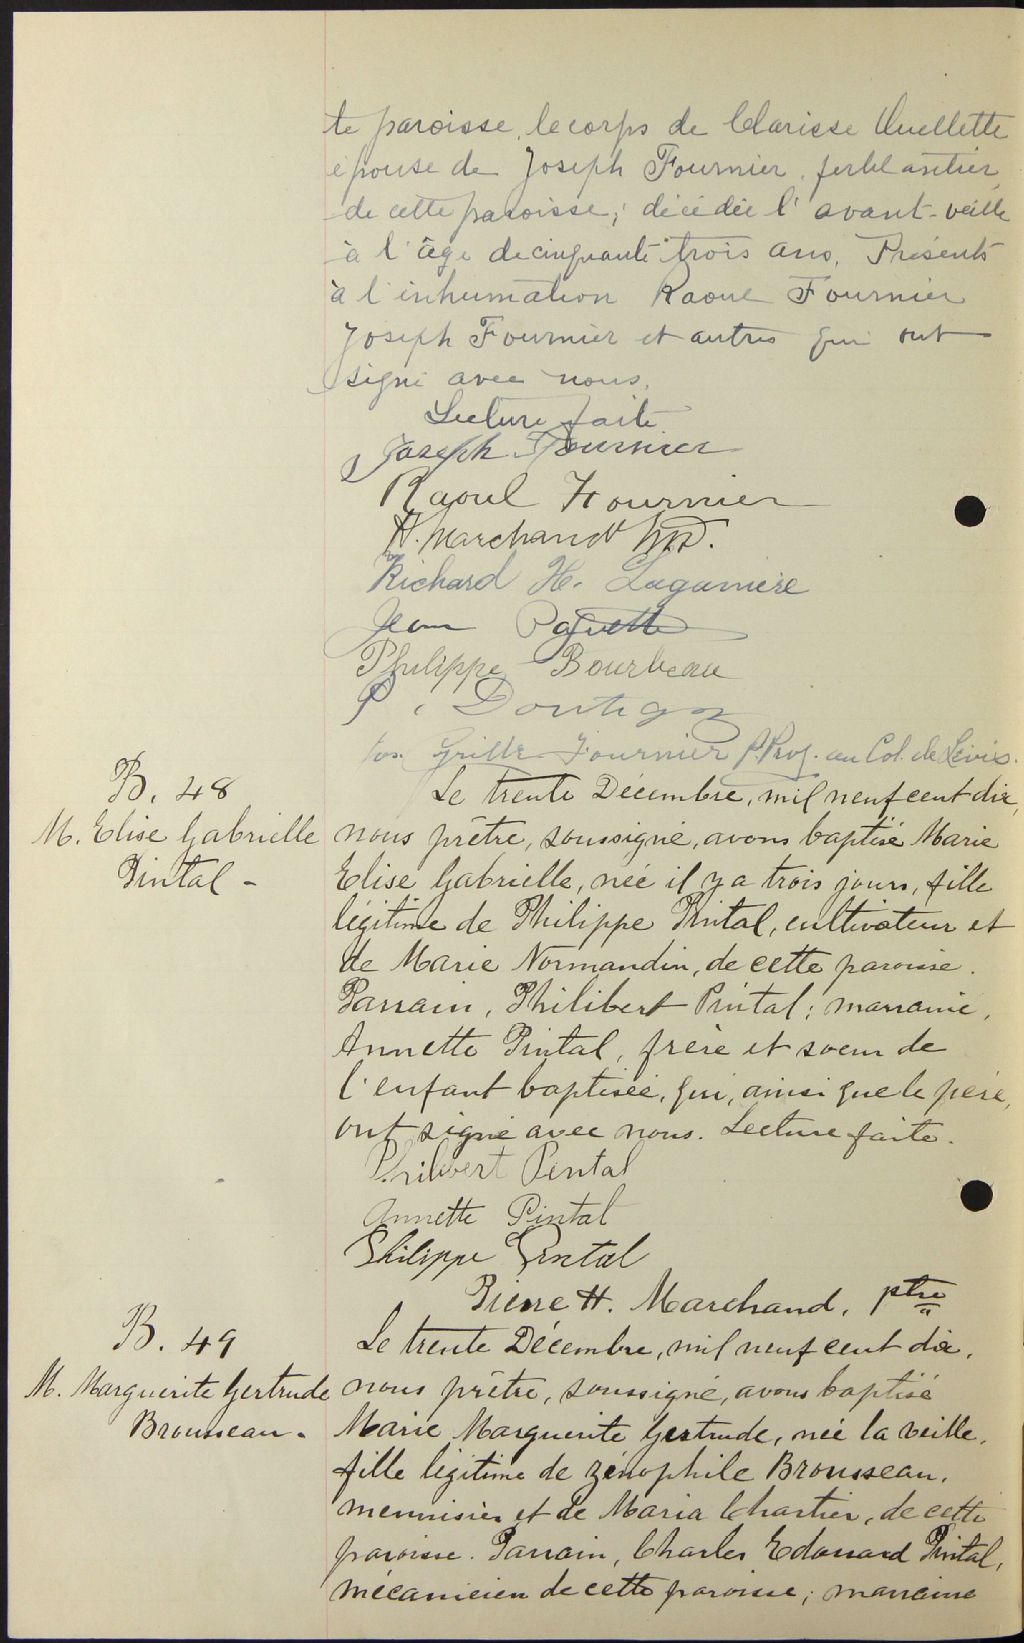 te paroisse, le corps de Clarisse Ouellette
épouse de Joseph Fournier, ferblantier,
de cette paroisse; décédée l'avant-veille
à l'âge de cinquante trois ans. Présents
à l'inhumation Raoul Fournier
Joseph Fournier et autres qui ont
signé avec nous.
Lecture faite
Joseph Fournier
Raoul Fournier
H. Marchand M.D.
Richard H. Laganière
Jean Paquette
Philippe Bourbeau
Fournier Prof. au Col. de Lévis.
B. 48
M. Elise Gabrielle
Pintal -
Le trente Décembre, mil neuf cent dix,
nous prêtre, soussigné, avons baptisé Marie
Elise Gabrielle, née il y a trois jours, fille
légitime de Philippe Pintal, cultivateur et
de Marie Normandin, de cette paroisse.
Parrain, Philibert Pintal; marraine,
Annette Pintal, frère et soeur de
l'enfant baptisée, qui, ainsi que le père,
ont signé avec nous. Lecture faite.
Philibert Pintal
Annette Pintal
Philippe Pintal
Pierre H. Marchand, ptre
B. 49
M. Marguerite Gertrude
Brousseau -
Le trente Décembre, mil neuf cent dix,
nous prêtre, soussigné, avons baptisé
Marie Marguerite Gertrude, née la veille,
fille légitime de Zénophile Brousseau,
menuisier et de Maria Chartier, de cette
paroisse. Parrain, Charles Edouard Pintal,
mécanicien de cette paroisse; marraine